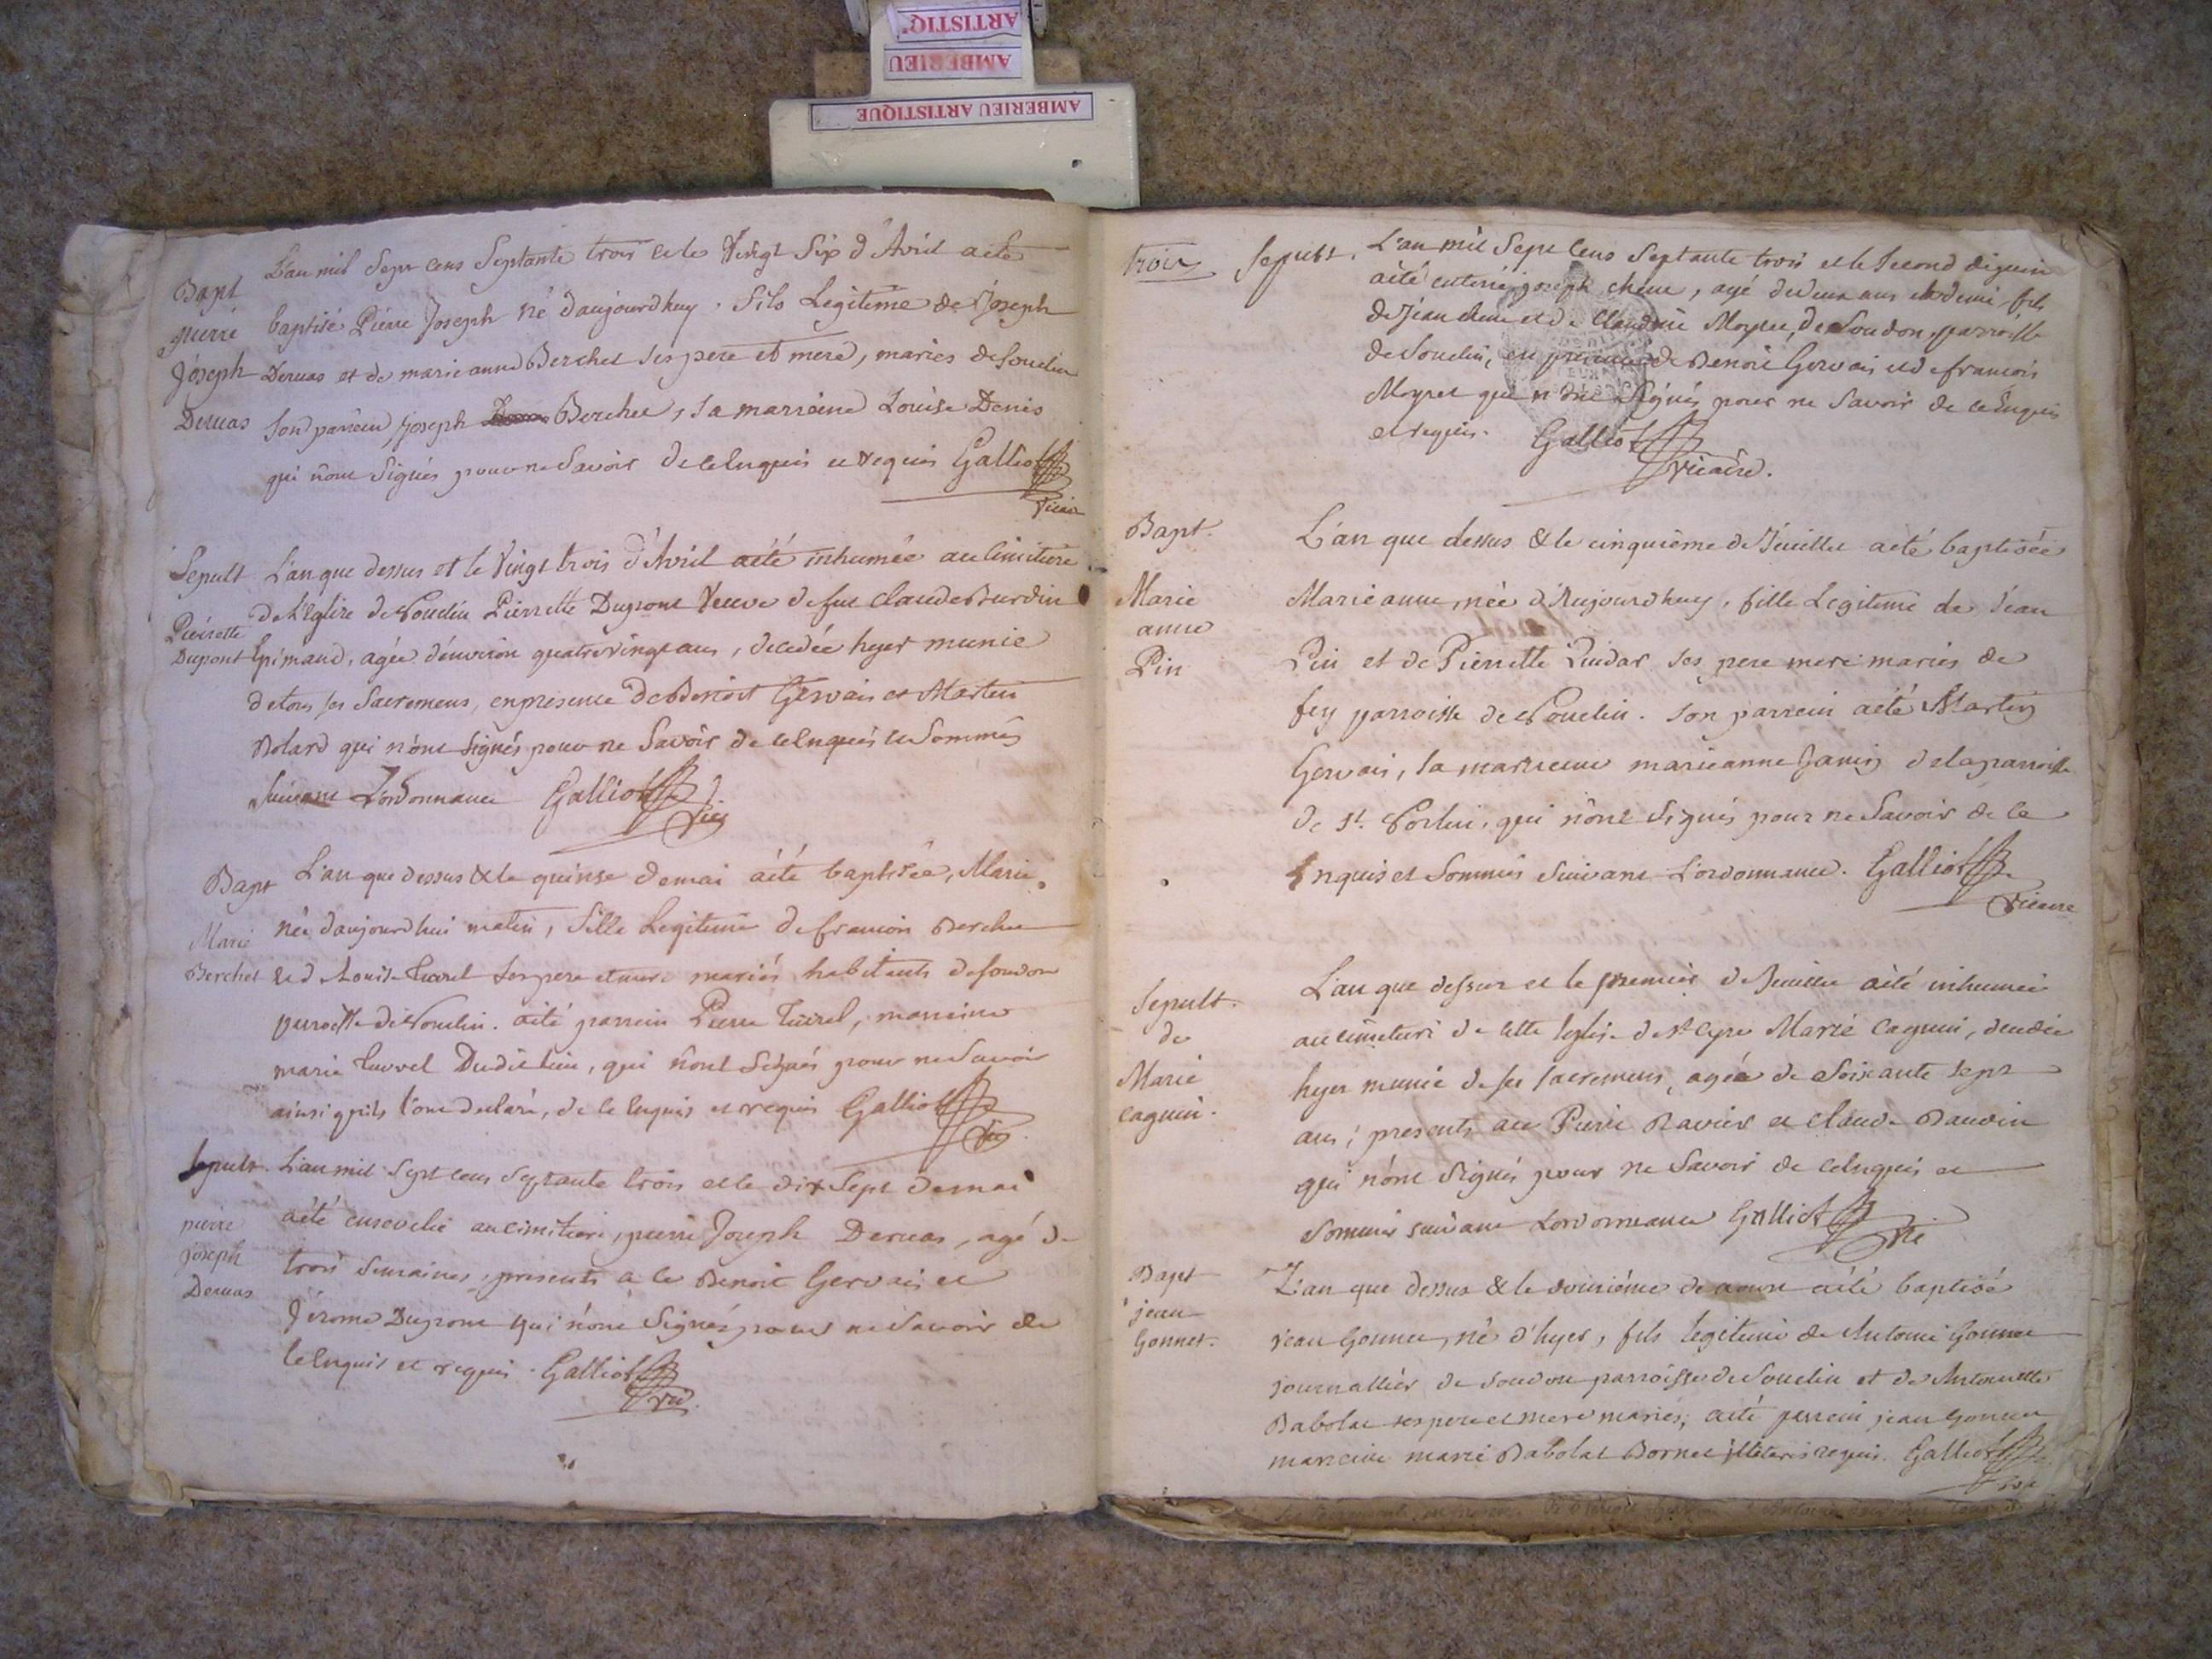 ARTISTIQ
AMBERIEU
AMBERIEU ARTISTIQUE
Bapt
pierre
Joseph
Deruas
L'an mil Sept cens Septante trois et le Vingt Six d'Avril a eté
baptisé Pierre Joseph né d'aujourdhuy. fils Legitime de Joseph
Deruas et de marie anne Berchet ses pere et mere, mariés de Souclin
son parrein Joseph Berchet, sa marreine Louise Denis
qui n'ont Signés pour ne Savoir de ce Enquis et requis Galliot
vicair
Sepult
Pierrette
Dupont
L'an que dessus et le Vingt trois d'Avril a eté inhumée au cimitiere
de L'Eglise de Souclin Pierrette Dupont Veuve de feu Claude Burdin
Epimand, agée d'environ quatre vingt ans, decedée hyer munie
de tous ses Sacremens, en presence de Benoit Gervais et Martin
Bolard qui n'ont Signés pour ne Savoir de ce Enquis et Sommés
Suivant L'ordonnance Galliot
Vic
Bapt
Marie
Berchet
L'an que dessus & le quinse de mai a eté baptisée, Marie
née d'aujourdhui matin, fille Legitime de francois Berchet
et de Louise Turrel ses pere et mere mariés habitants de Soudon
parroisse de Souclin. a eté parrein Pierre Turrel, marreine
marie Turrel Dudit lieu, qui n'ont Signés pour ne Savoir
ainsi qu'ils l'ont declaré, de ce Enquis et requis Galliot
Vic
Sepult.
pierre
joseph
Deruas
L'an mil Sept cens Septante trois et le dix Sept de mai
a eté enseveli au cimitiere, pierre Joseph Deruas, agé de
trois Semaines, presents a ce Benoit Gervais et
Jérome Dupont qui n'ont Signés pour ne Savoir de
ce Enquis et requis. Galliot
vic.
trois
Sepult.
L'an mil Sept cens Septante trois et le Second de juin
a eté enterré joseph chene, agé de deux ans et demi, fils
de Jean chene et de Claudine Moyret, de Soudon, parroisse
de Souclin, en presence de Benoit Gervais et de francois
Moyret qui n'ont Signés pour ne Savoir de ce Enquis
et requis. Galliot
vicaire.
Bapt.
Marie
anne
Pin
L'an que dessus & le cinquième de Juillet a eté baptisée
Marie anne, née d'Aujourdhuy, fille Legitime de Jean
Pin et de Pierrette Quidar ses pere mere mariés de
fey parroisse de Souclin. son parrein a eté Martin
Gervais, sa marreine marieanne Janin de la parroisse
de St. Sorlin, qui n'ont Signés pour ne Savoir de ce
Enquis et Sommés Suivant L'ordonnance. Galliot
Vicaire
Sepult.
de
Marie
caguin.
L'an que dessus et le premier de Juillet a eté inhumée
au cimetiere de cette Eglise de St Cyr Marie caguin, decedée
hyer munie de ses Sacremens, agée de Soixante Sept
ans, presents au Pierre Ravier et claude Baudin
qui n'ont Signés pour ne Savoir de ce Enquis et
Sommés suivant Lordonnance Galliot
Vic
Bapt
jean
Gonnet.
L'an que dessus & le de aoust a eté baptisé
jean Gonnet, né d'hyer, fils legitime de Antoine Gonnet
journallier de Soudon parroisse de Souclin et de Antoinette
Babolat ses pere et mere mariés; a eté parrein jean Gonnet
marreine marie Babolat Bornet illiterés requis. Galliot
vic